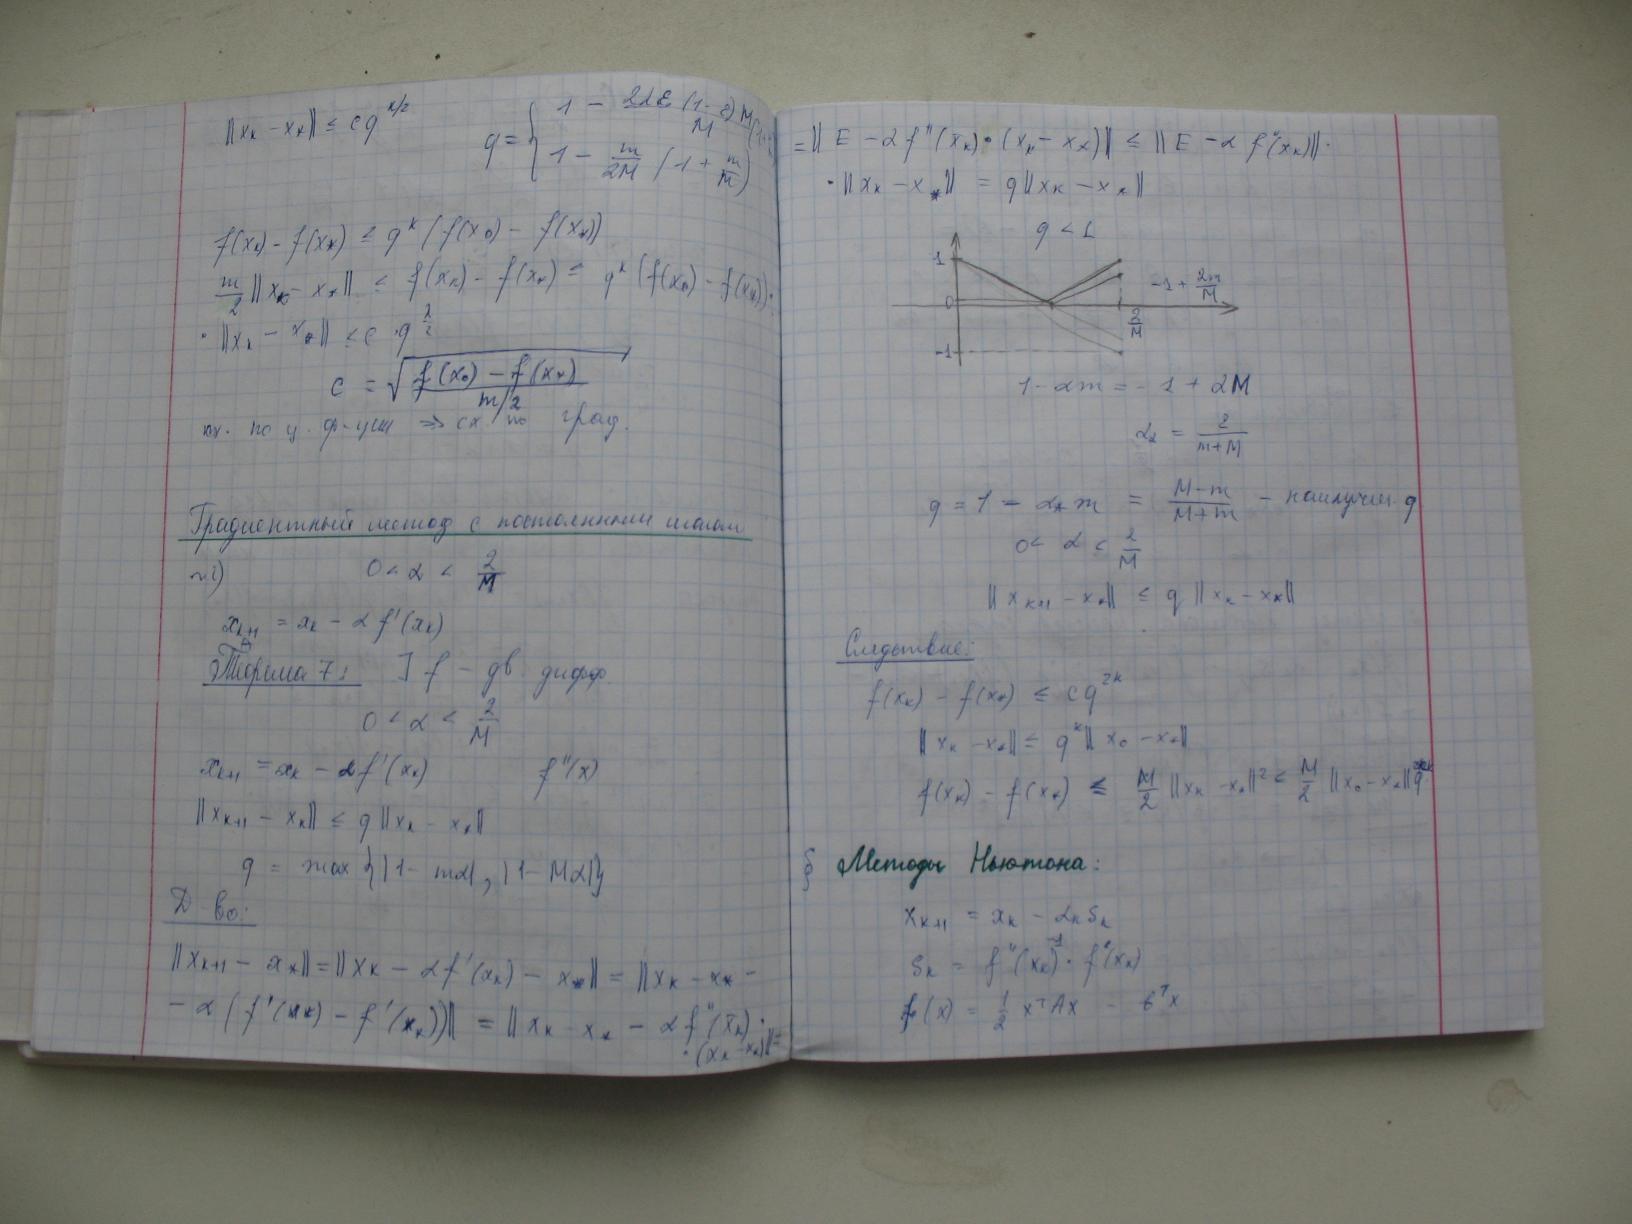 ||xₖ - x*|| ≤ cq^{k/2}
q = { 1 - 2λε(1-ε)m
M
1 - m/2M (1 + m/M)
f(xₖ) - f(x*) ≤ qᵏ (f(x₀) - f(x*))
m/2 ||xₖ - x*|| ≤ f(xₖ) - f(x*) ≤ qᵏ (f(x₀) - f(x*))
||xₖ - x*|| ≤ c · q^{k/2}
c = √((f(x₀) - f(x*)) / (m/2))
сх. по ц. ф-ции ⇒ сх по град.
Градиентный метод с постоянным шагом
0 < α < 2/M
xₖ₊₁ = xₖ - αf'(xₖ)
Теорема 7: ] f - дв. дифф.
0 < α < 2/M
xₖ₊₁ = xₖ - αf'(xₖ) f''(x)
||xₖ₊₁ - x*|| ≤ q||xₖ - x*||
q = max {|1 - mα|, |1 - Mα|}
Д-во:
||xₖ₊₁ - x*|| = ||xₖ - αf'(xₖ) - x*|| = ||xₖ - x* -
- α(f'(xₖ) - f'(x*))|| = ||xₖ - x* - αf''(x̄ₖ) ·
· (xₖ - x*)|| =
= ||E - αf''(x̄ₖ) · (xₖ - x*)|| ≤ ||E - αf''(x̄ₖ)|| ·
· ||xₖ - x*|| = q||xₖ - x*||
q < 1
1
-1 + 2m/M
0
2/M
-1
1 - αm = -1 + αM
α* = 2/(m+M)
q = 1 - α*m = (M-m)/(M+m) - наилучш. q
0 < α < 2/M
||xₖ₊₁ - x*|| ≤ q||xₖ - x*||
Следствие:
f(xₖ) - f(x*) ≤ cq^{2k}
||xₖ - x*|| ≤ qᵏ||x₀ - x*||
f(xₖ) - f(x*) ≤ M/2 ||xₖ - x*||² ≤ M/2 ||x₀ - x*|| q^{2k}
§ Методы Ньютона:
xₖ₊₁ = xₖ - αₖsₖ
sₖ = f''(xₖ)⁻¹ · f'(xₖ)
f(x) = 1/2 xᵀAx - bᵀx